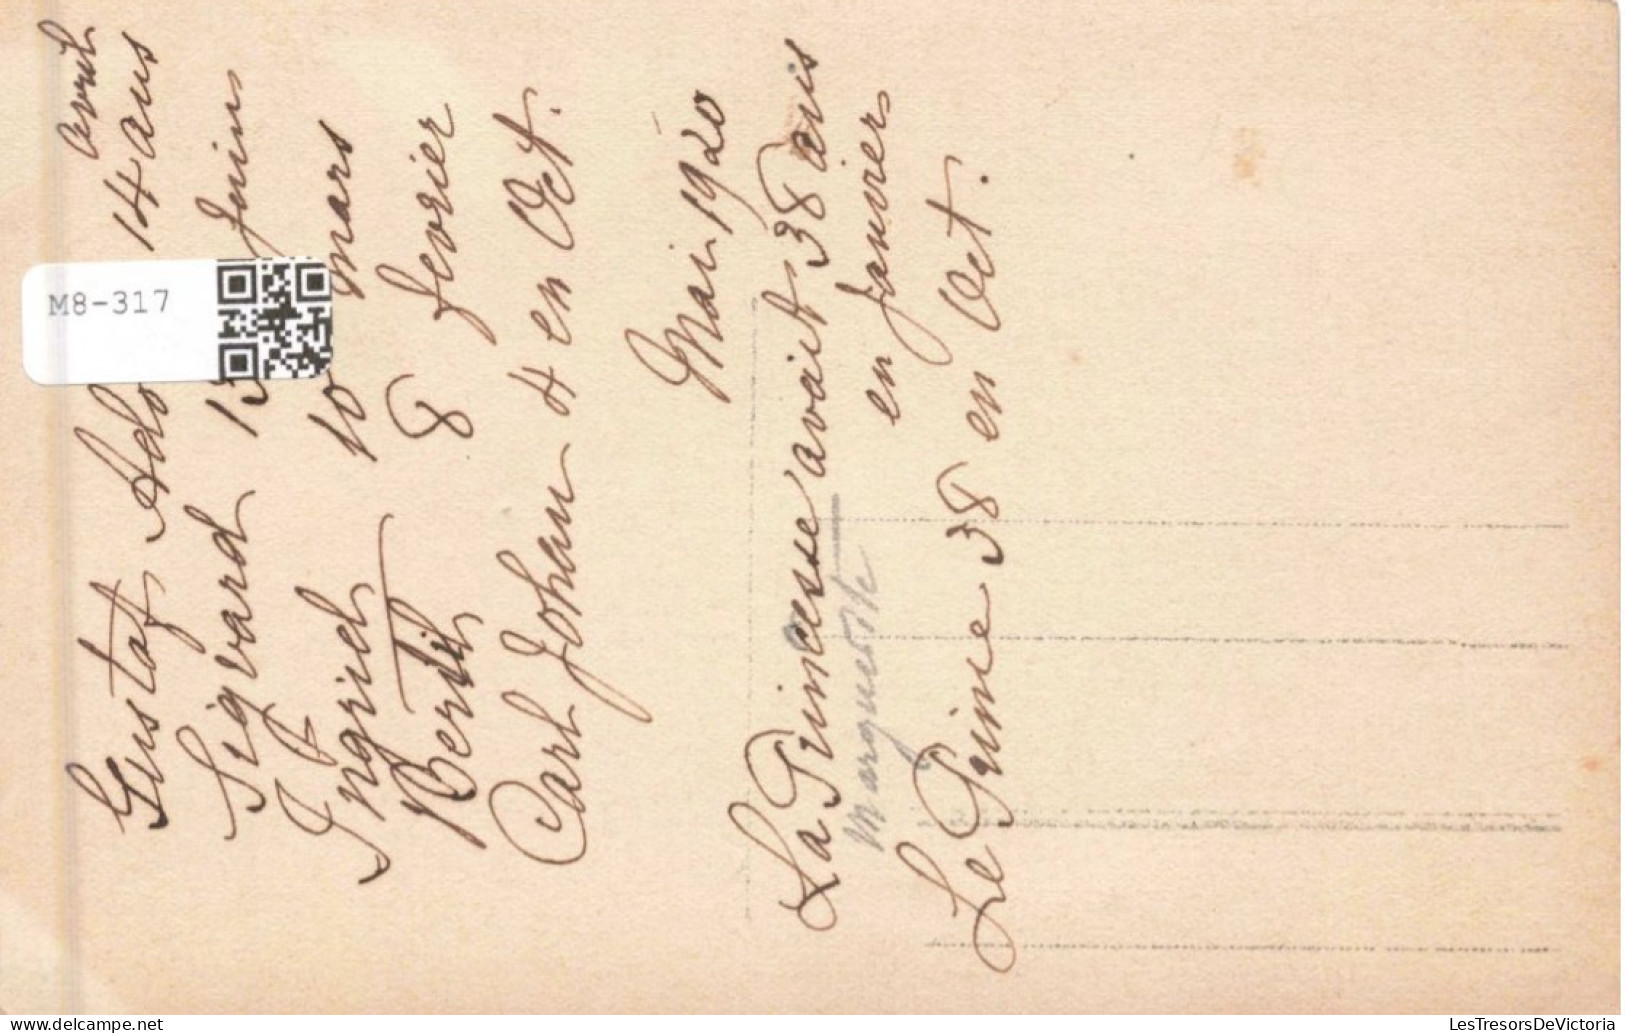 Gustaf Ado 14 ans avril
Sigvard 13 Juin
Ingrid 10 mars
Bertil 8 fevrier
Carl Johan 4 en Oct.
Mai 1920
La Princesse avait 38 ans
marguerite en Janvier
Le Prince 38 en Oct.
M8-317
LesTresorsDeVictoria